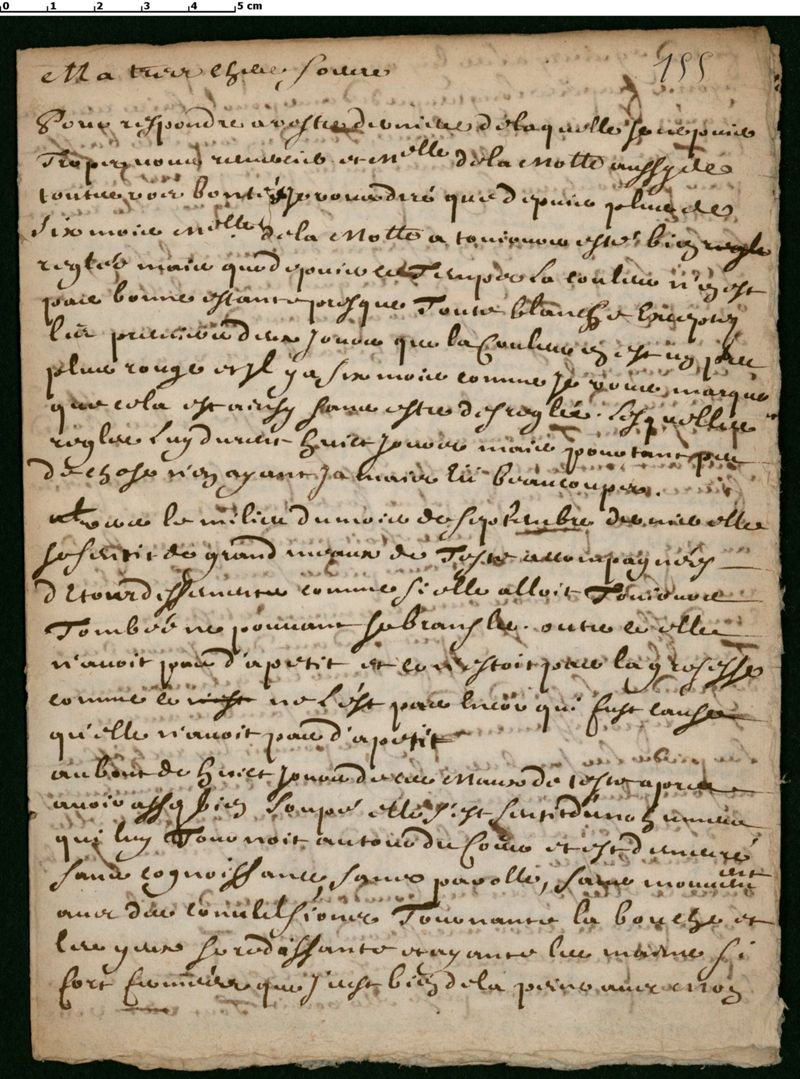 0 1 2 3 4 5 cm
Ma tres chere soeure
155
Pour respondre a vostre derniere de laquelle je ne puis
Trop vous remercie et Melle de la Motte aussy de
toutes vos bontés, je vous diré que depuis plus de
six mois Melle de la Motte a tousiours esté bien regle
reglee mais que depuis ce Temps la couleur n'en est
pas bonne estante presque Toute blanche excepté
les premiers deux jours que la Couleur en est un peu
plus rouge et Jl y a six mois comme je vous marque
que cela est ainsy sans estre desreglée. Lesquelles
regles luy durent huict jours mais pourtant peu
de chose n'en ayant jamais eü beaucoupes.
Vers le milieu du mois de septembre dernier elle
se sentit de grand meaux de Teste accompagnées
d'etourdissements comme si elle alloit Tousiours
Tombée ne pouvant se bransler. outre ce elle
n'avoit pas d'apetit et ce n'estoit pas la grosesse
comme ce n'est ne l'est pas encor qui fust cause
qu'elle n'avoit pas d'apetit
au bout de huict jours de ces Maux de teste apres
avoir assez bien soupé elle s'est sentit d'une humeur
qui luy Tournoit autour du Coeur et est demeuré
sans cognoissance, sans parolle, sans mouvement
avec des convulsions Tournante la bouche et
les yeux se redissante et ayante les mains si
fort fermées que j'eust bien de la peine avec mon